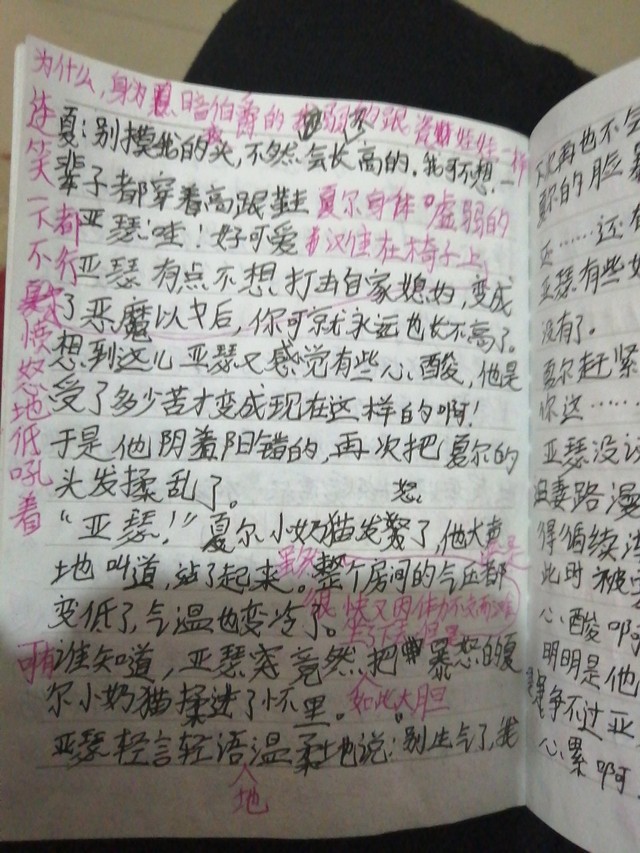 为什么,身为黑暗伯爵的我弱的跟瓷娃娃一样
连笑一下都不行
夏:别摸我的头,不然会长高的,我可不想一
辈子都穿着高跟鞋 夏尔身体虚弱的
亚瑟:哇!好可爱 瘫坐在椅子上,
亚瑟有点不想打击自家媳妇,变成
了恶魔以后,你可就永远也长不高了。
夏尔愤怒地低吼着
想到这儿亚瑟又感觉有些心酸,他是
受了多少苦才变成现在这样的啊!
于是他阴差阳错的,再次把夏尔的
头发揉乱了。
怒
“亚瑟!”夏尔小奶猫发怒了,他大声
地叫道,站了起来。整个房间的气压都
虽然 但是
变低了,气温也变冷了。很快又因体力不支而
可谁知道,亚瑟竟然把暴怒的夏
尔小奶猫揉进了怀里。如此大胆
亚瑟轻言轻语温柔地说:别生气了,我
地
不
夏尔的脸
还……还
亚瑟有些
没有了。
夏尔赶紧
你这……
亚瑟没
得循续
此时被
心酸啊
明明是他
争不过亚
心累啊